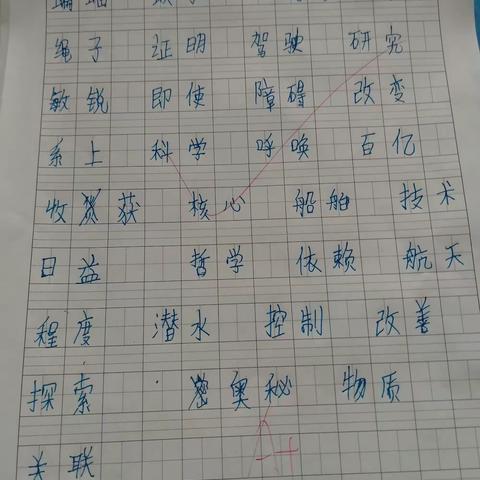 绳子 证明 驾驶 研究
敏锐 即使 障碍 改变
系上 科学 呼唤 百亿
收获 核心 船舶 技术
日益 哲学 依赖 航天
程度 潜水 控制 改善
探索 奥秘 物质
关联
A+